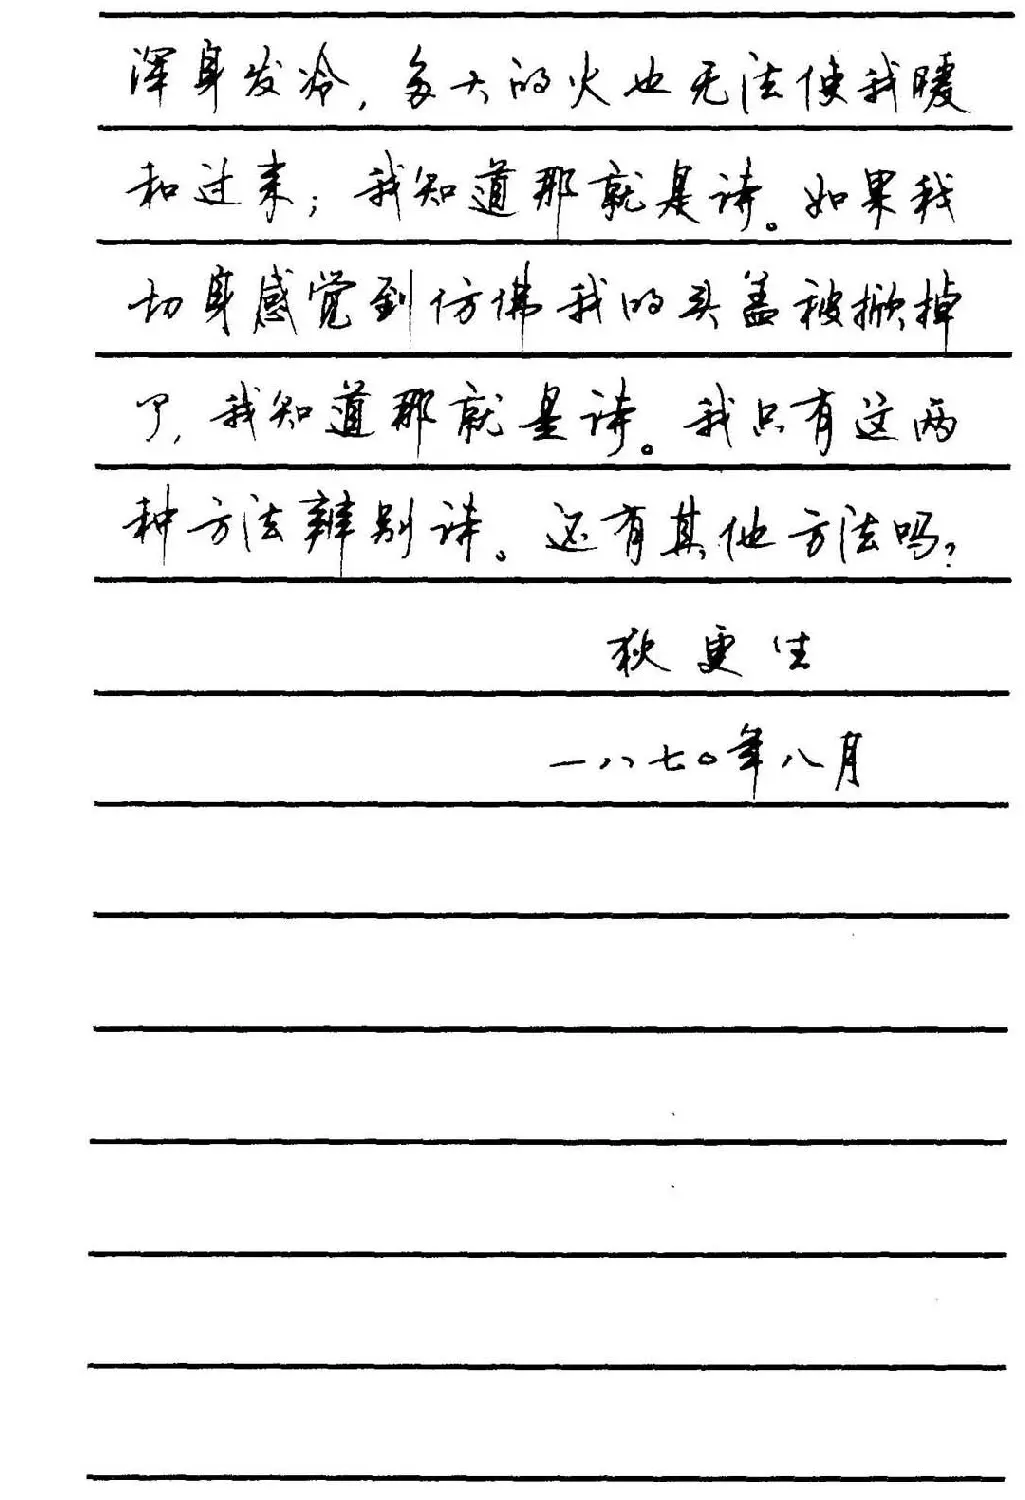 浑身发冷，多大的火也无法使我暖
和过来；我知道那就是诗。如果我
切身感觉到仿佛我的头盖被掀掉
了，我知道那就是诗。我只有这两
种方法辨别诗。还有其他方法吗？
狄更生
一八七〇年八月